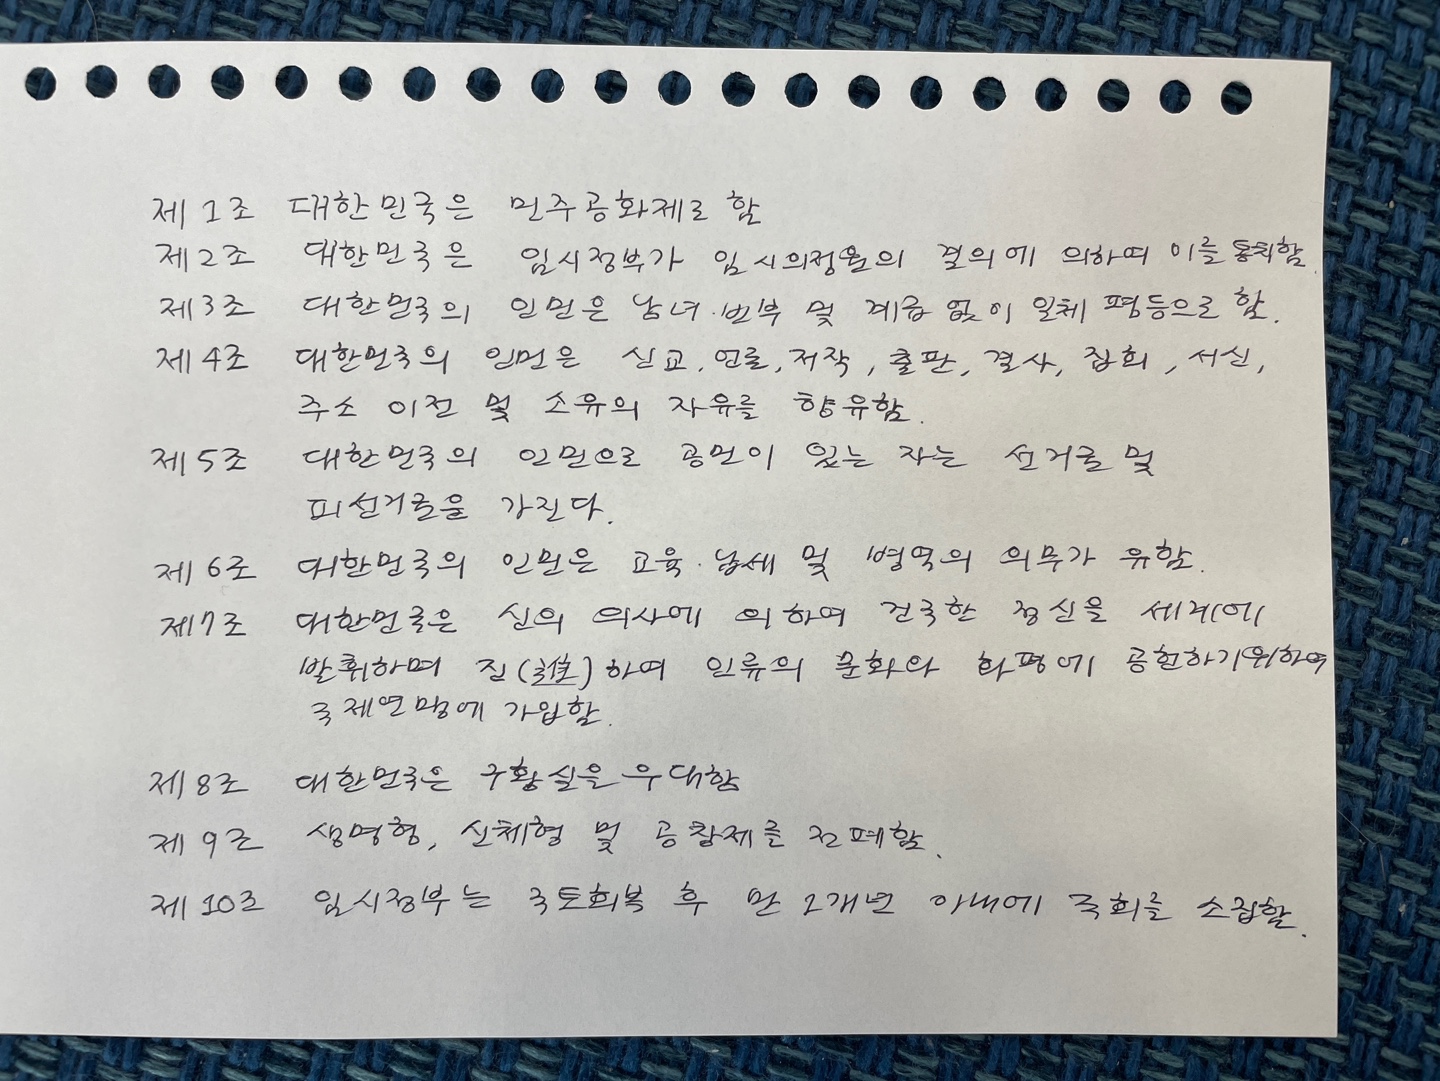 제1조 대한민국은 민주공화제로 함
제2조 대한민국은 임시정부가 임시의정원의 결의에 의하여 이를 통치함.
제3조 대한민국의 인민은 남녀·빈부 및 계급 없이 일체 평등으로 함.
제4조 대한민국의 인민은 신교, 언론, 저작, 출판, 결사, 집회, 서신,
주소 이전 및 소유의 자유를 향유함.
제5조 대한민국의 인민으로 공민이 있는 자는 선거를 및
피선거를을 가진다.
제6조 대한민국의 인민은 교육·납세 및 병역의 의무가 유함.
제7조 대한민국은 신의 의사에 의하여 건국한 정신을 세계에
발휘하며 진( )하여 인류의 문화와 화평에 공헌하기위하여
국제연맹에 가입함.
제8조 대한민국은 구황실을 우대함
제9조 생명형, 신체형 및 공창제를 전폐함.
제10조 임시정부는 국토회복 후 만 1개년 이내에 국회를 소집함.